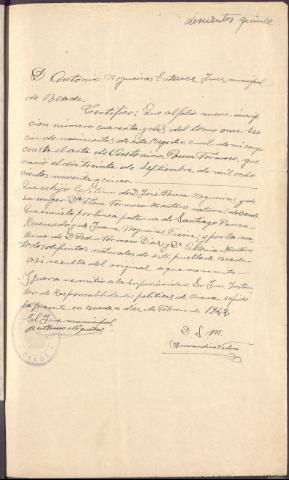 doscientos quince
D Antonio Nogueiras Estevez Juez municipal
de Beade.
Certifico: Que al folio nueve, inscrip
cion numero cuarenta y dos del tomo once sec
cion de nacimientos de este Registro civil de mi cargo
consta el acta de Antonina Pousa Formoso, que
nacio el dia treinta de septiembre de mil ocho
cientos noventa y cinco.
Que es hijo legitimo de D. José Pousa Nogueiras y de
su mujer Dª Flora Formoso Montero natural de Beade
Que es nieta por linea paterna de Santiago Pousa
y de Juana Nogueiras Freire; y por la ma
terna de D Pedro Formoso Diaz y Dª Antonia Montero
todos difuntos naturales de este pueblo de Beade
asi resulta del original a que me remito
Y para remitir a la Superioridad Sr. Juez Instruc
tor de Responsabilidades politicas de Orense expido
la presente en Beade a diez de Febrero de 1942
El Juez municipal
Antonio Nogueiras
D. S. M.
BEADE